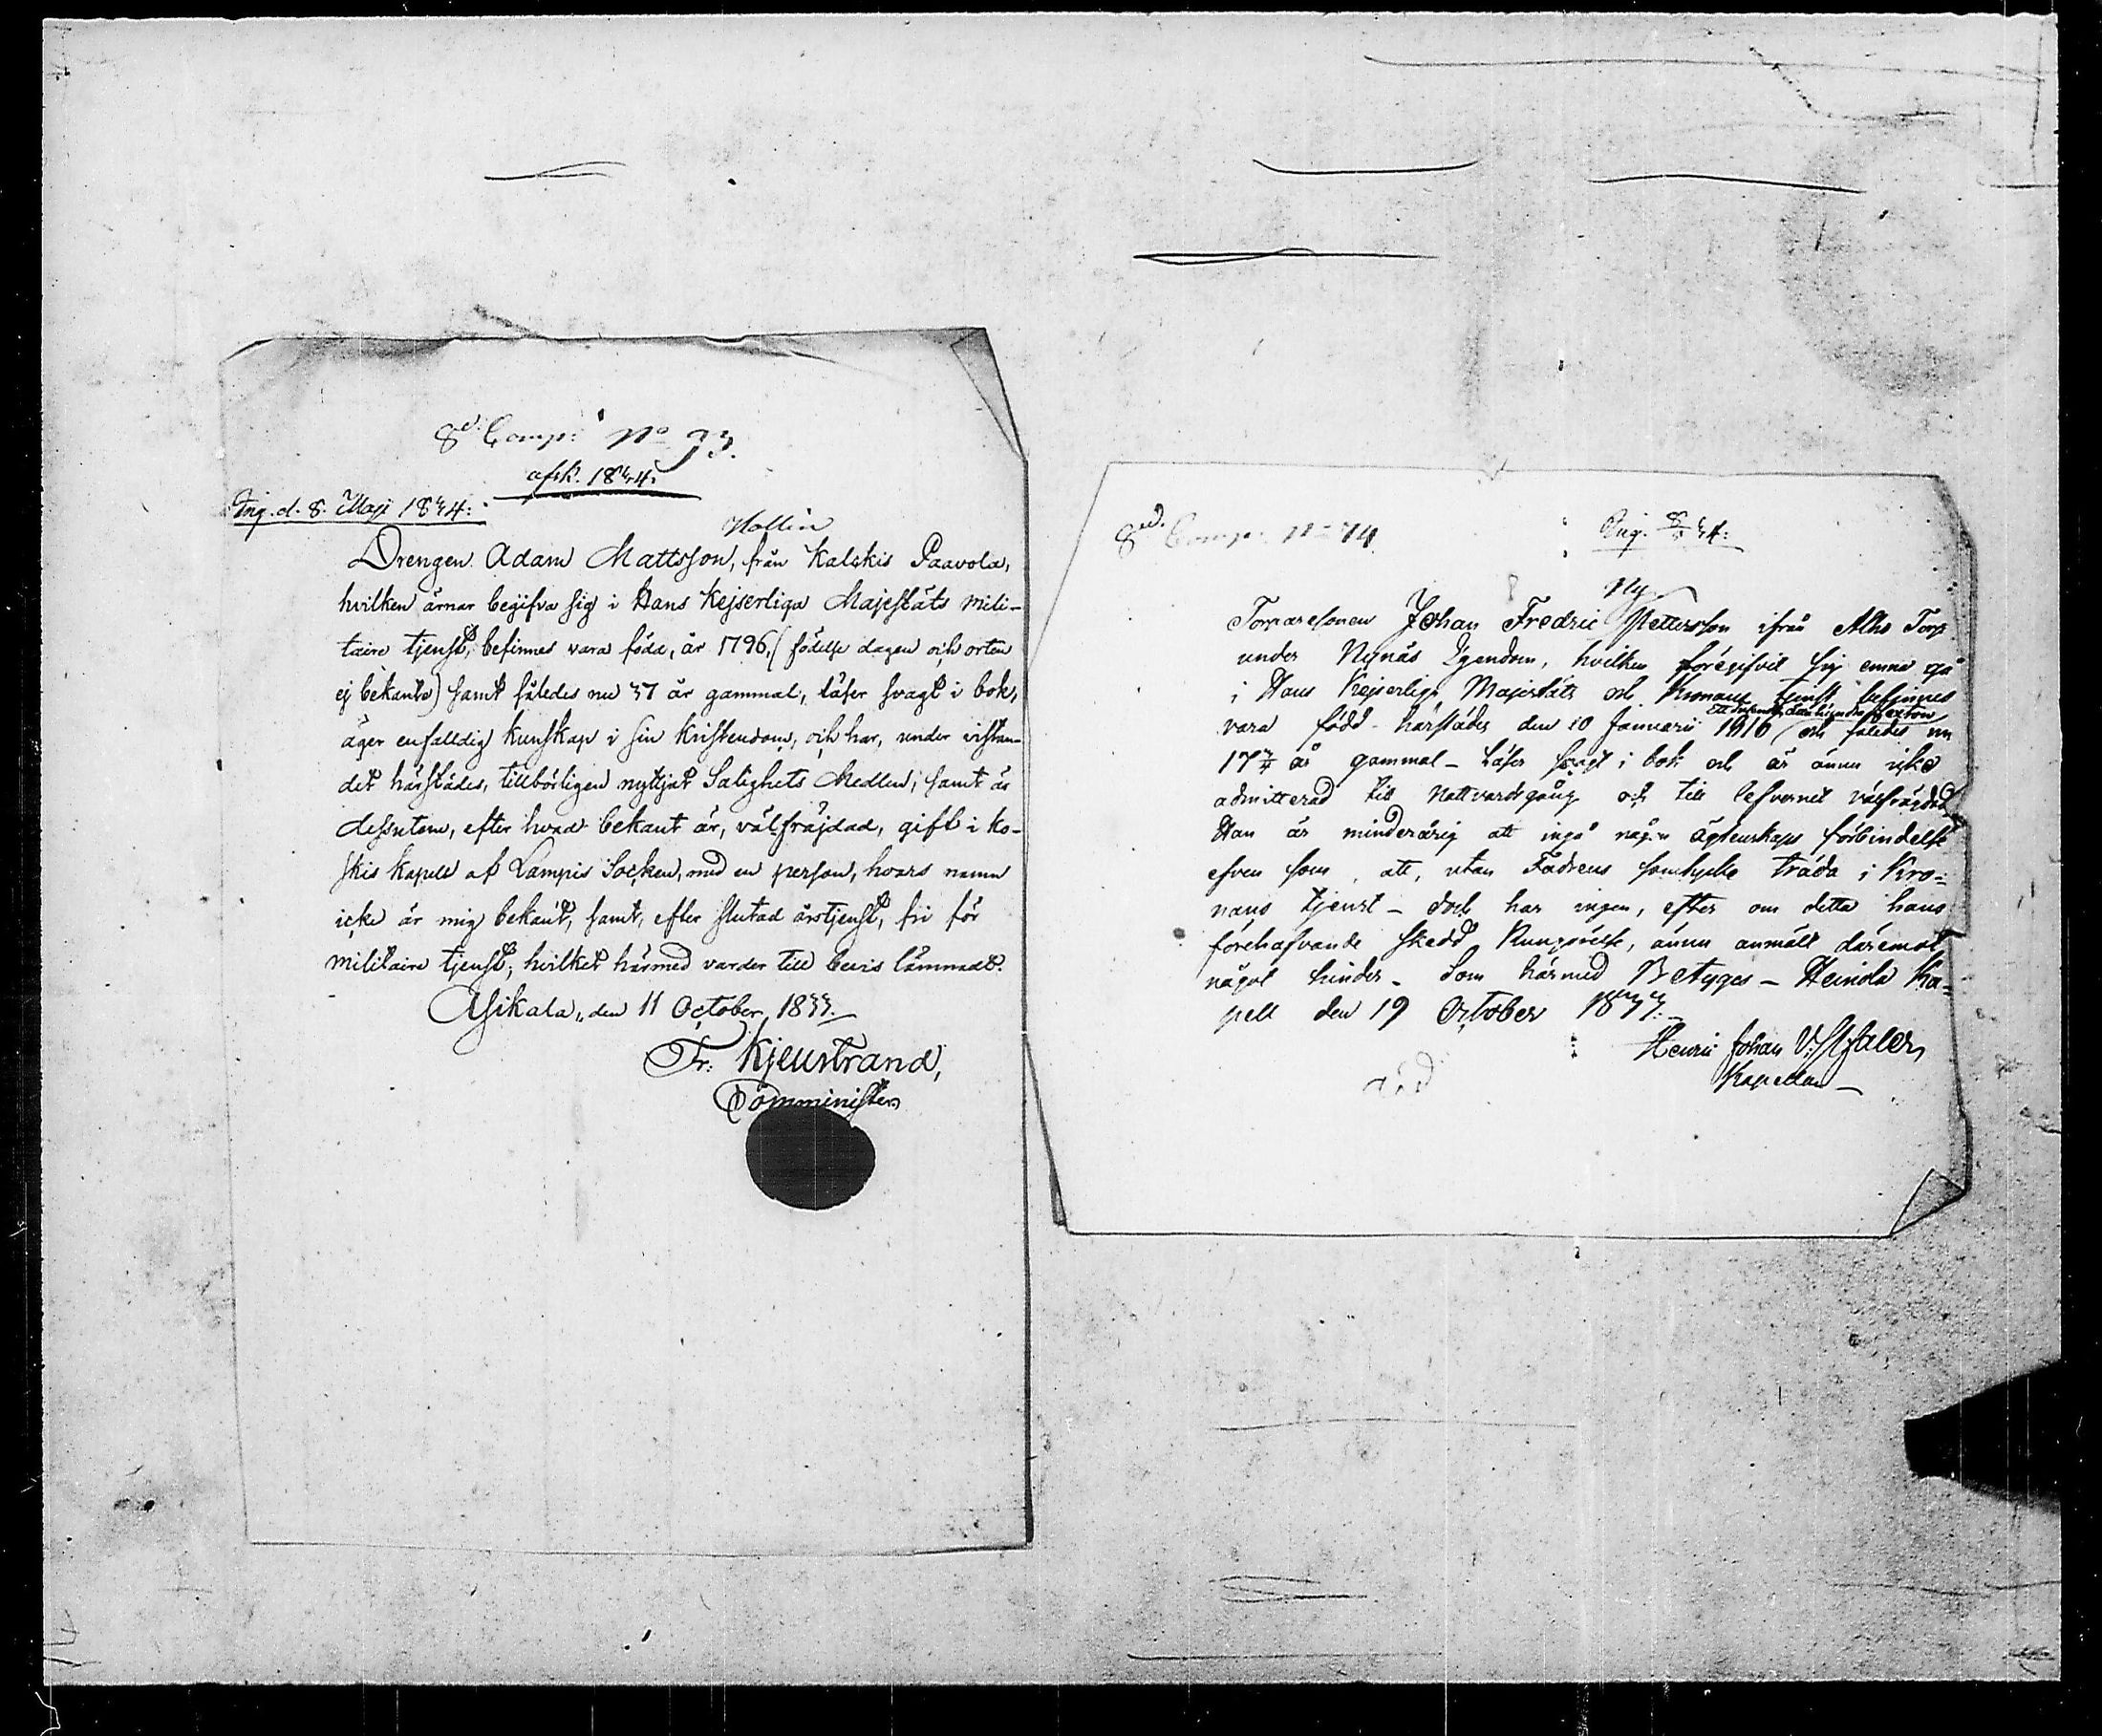 8de Comp: No 73.
afsk. 1834.
Ing. d. 8. Maji 1834:
Hollin
Drengen Adam Mattsson, från Kalckis Paavola,
hvilken ärnar begifva sig i Hans Kejserliga Majestäts mili-
taire tjenst, befinnes vara född, år 1796, (födelse dagen och orten
ej bekanta) samt således nu 37 år gammal, läser svagt i bok,
äger enfalldig kunskap i sin Kristendom, och har, under vistan-
det härstädes, tillbörligen nyttjat Salighets Medlen; samt är
dessutom, efter hvad bekant är, välfräjdad, gift i Ko-
skis Kapell af Lampis Socken, med en person, hvars namn
icke är mig bekant, samt, efter slutad årstjenst, fri för
militaire tjenst; hvilket härmed varder till bevis lämnadt.
Asikala, den 11 October, 1833.
Fr: Kjeustrand,
Comminister
8de Comp: No 74
Ing. 8/5 34:
Ny
Torparesonen Johan Fredric Pettersson ifrån Alho Torp
under Nynäs Egendom, hvilken föregifvit sig emna gå
i Hans Kejserliga Majestäts och Kronans tjenst befinnes
Ett tusende åtta hundra sexton
vara född härstädes den 10 Januarii 1816 och således nu
17 3/4 år gammal - Läser svagt i bok och är ännu icke
admitterad till Nattvardsgång och till lefvernet välfräjdad
Han är minderårig att ingå någon ägtenskaps förbindelse
efven som, att, utan Fadrens samtycke träda i Kro-
nans tjenst - och har ingen, efter om detta hans
förehafvande skedd Kungörelse, ännu anmält däremot
något hinder - Som härmed Betygas - Heinola Ka-
pell den 19 October 1833.
Henric Johan
Kapellan